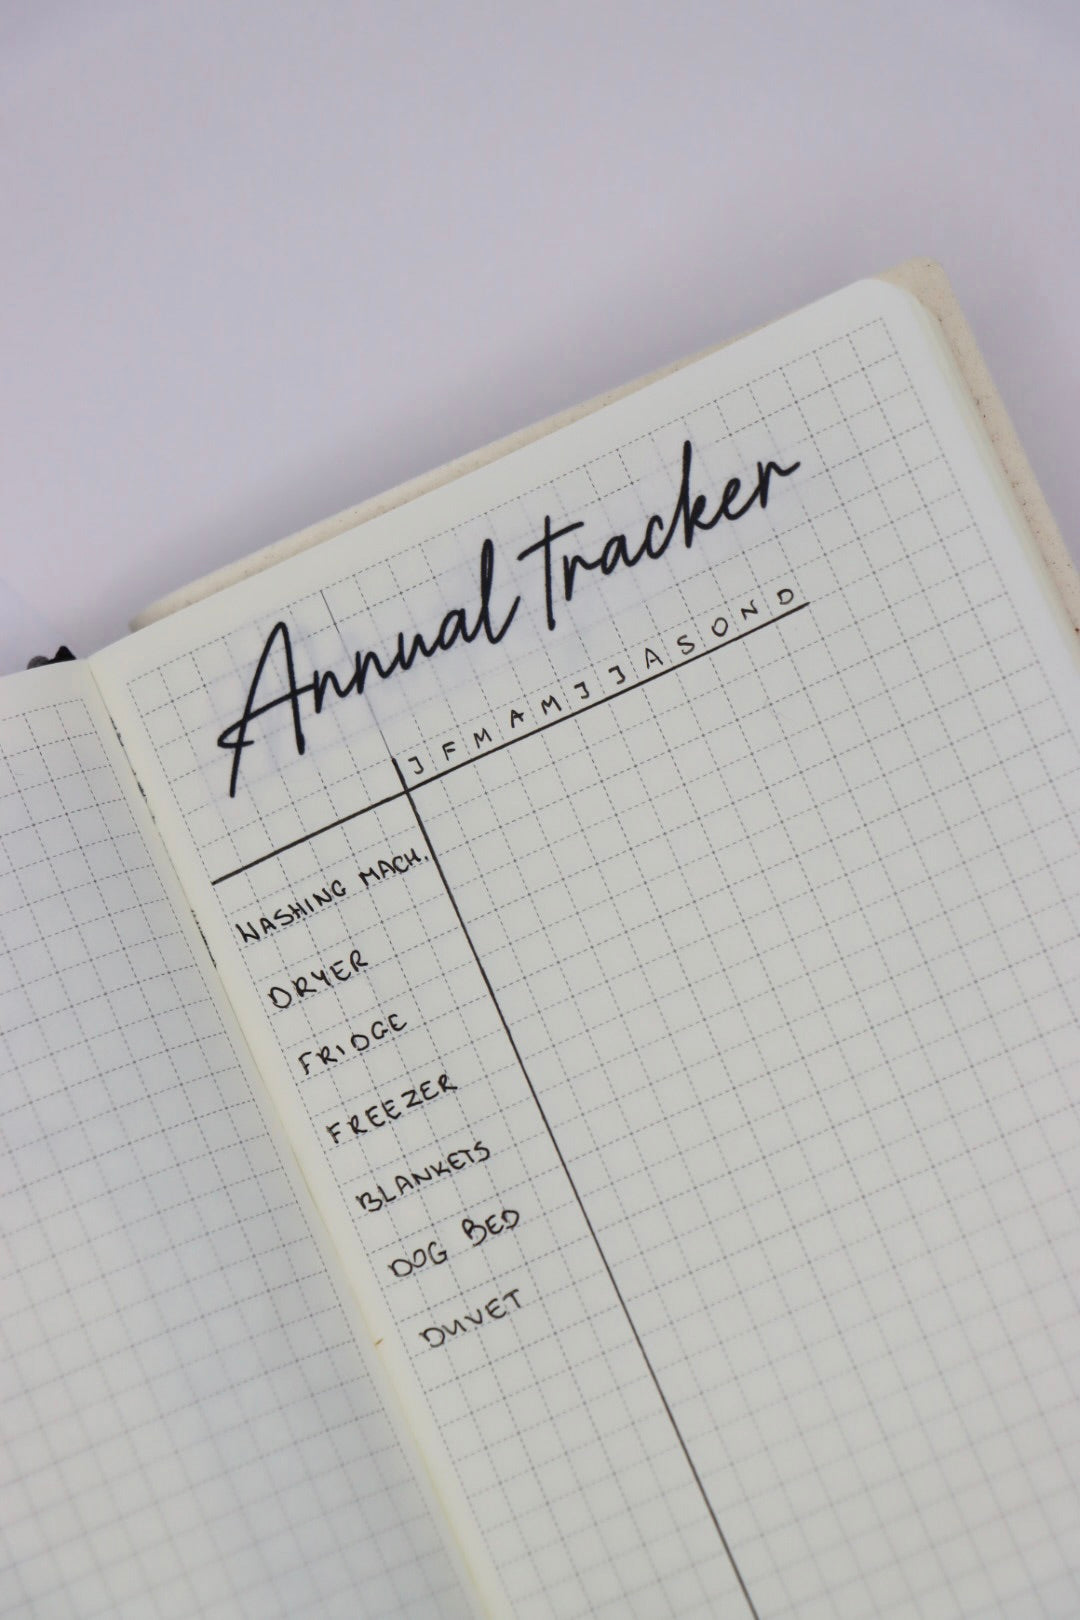 Annual Tracker
J F M A M J J A S O N D
WASHING MACH.
DRYER
FRIDGE
FREEZER
BLANKETS
DOG BED
DUVET